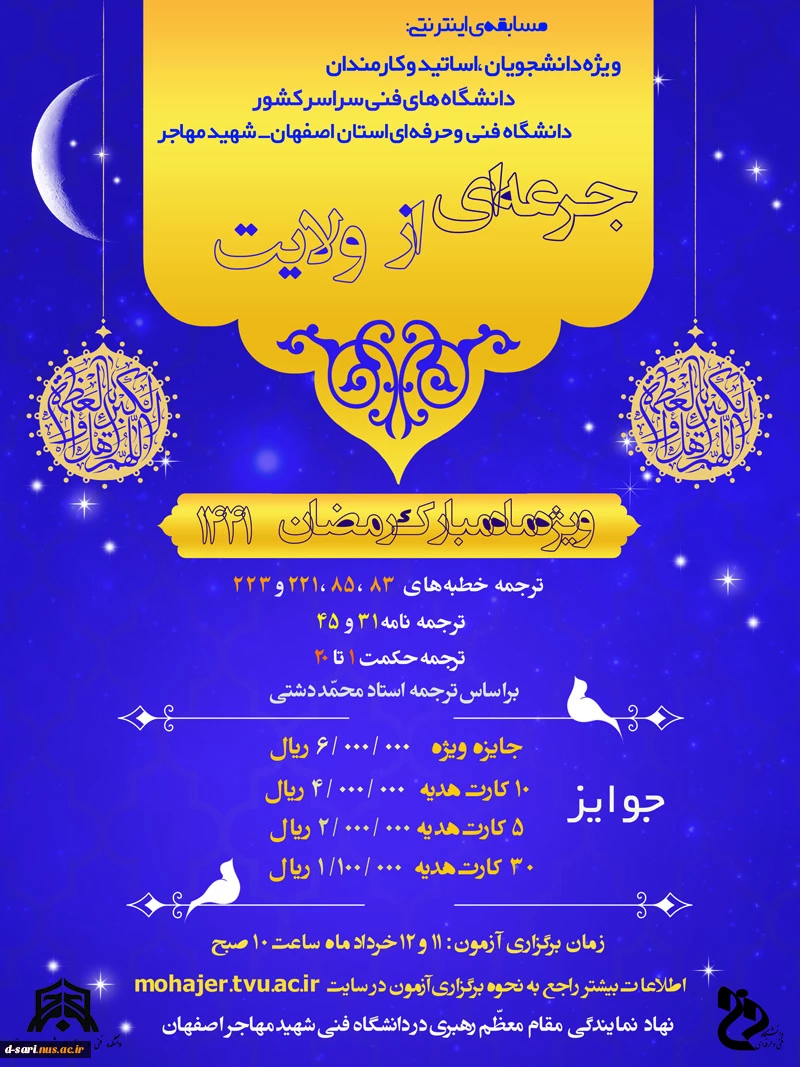 مسابقه‌ی اینترنتی:
ویژه دانشجویان ،اساتید و کارمندان
دانشگاه های فنی سراسر کشور
دانشگاه فنی و حرفه ای استان اصفهان_ شهید مهاجر
جرعه‌ای از ولایت
ویژه ماه مبارک رمضان ۱۴۴۱
ترجمه خطبه های ۸۳ ،۸۵ ،۲۲۱ و ۲۲۳
ترجمه نامه ۳۱ و ۴۵
ترجمه حکمت ۱ تا ۲۰
براساس ترجمه استاد محمّد دشتی
جوایز
جایزه ویژه ۶/۰۰۰/۰۰۰ ریال
۱۰ کارت هدیه ۴/۰۰۰/۰۰۰ ریال
۵ کارت هدیه ۲/۰۰۰/۰۰۰ ریال
۳۰ کارت هدیه ۱/۱۰۰/۰۰۰ ریال
زمان برگزاری آزمون: ۱۱ و ۱۲ خرداد ماه ساعت ۱۰ صبح
اطلاعات بیشتر راجع به نحوه برگزاری آزمون در سایت mohajer.tvu.ac.ir
نهاد نمایندگی مقام معظّم رهبری در دانشگاه فنی شهید مهاجر اصفهان
d-sari.nus.ac.ir